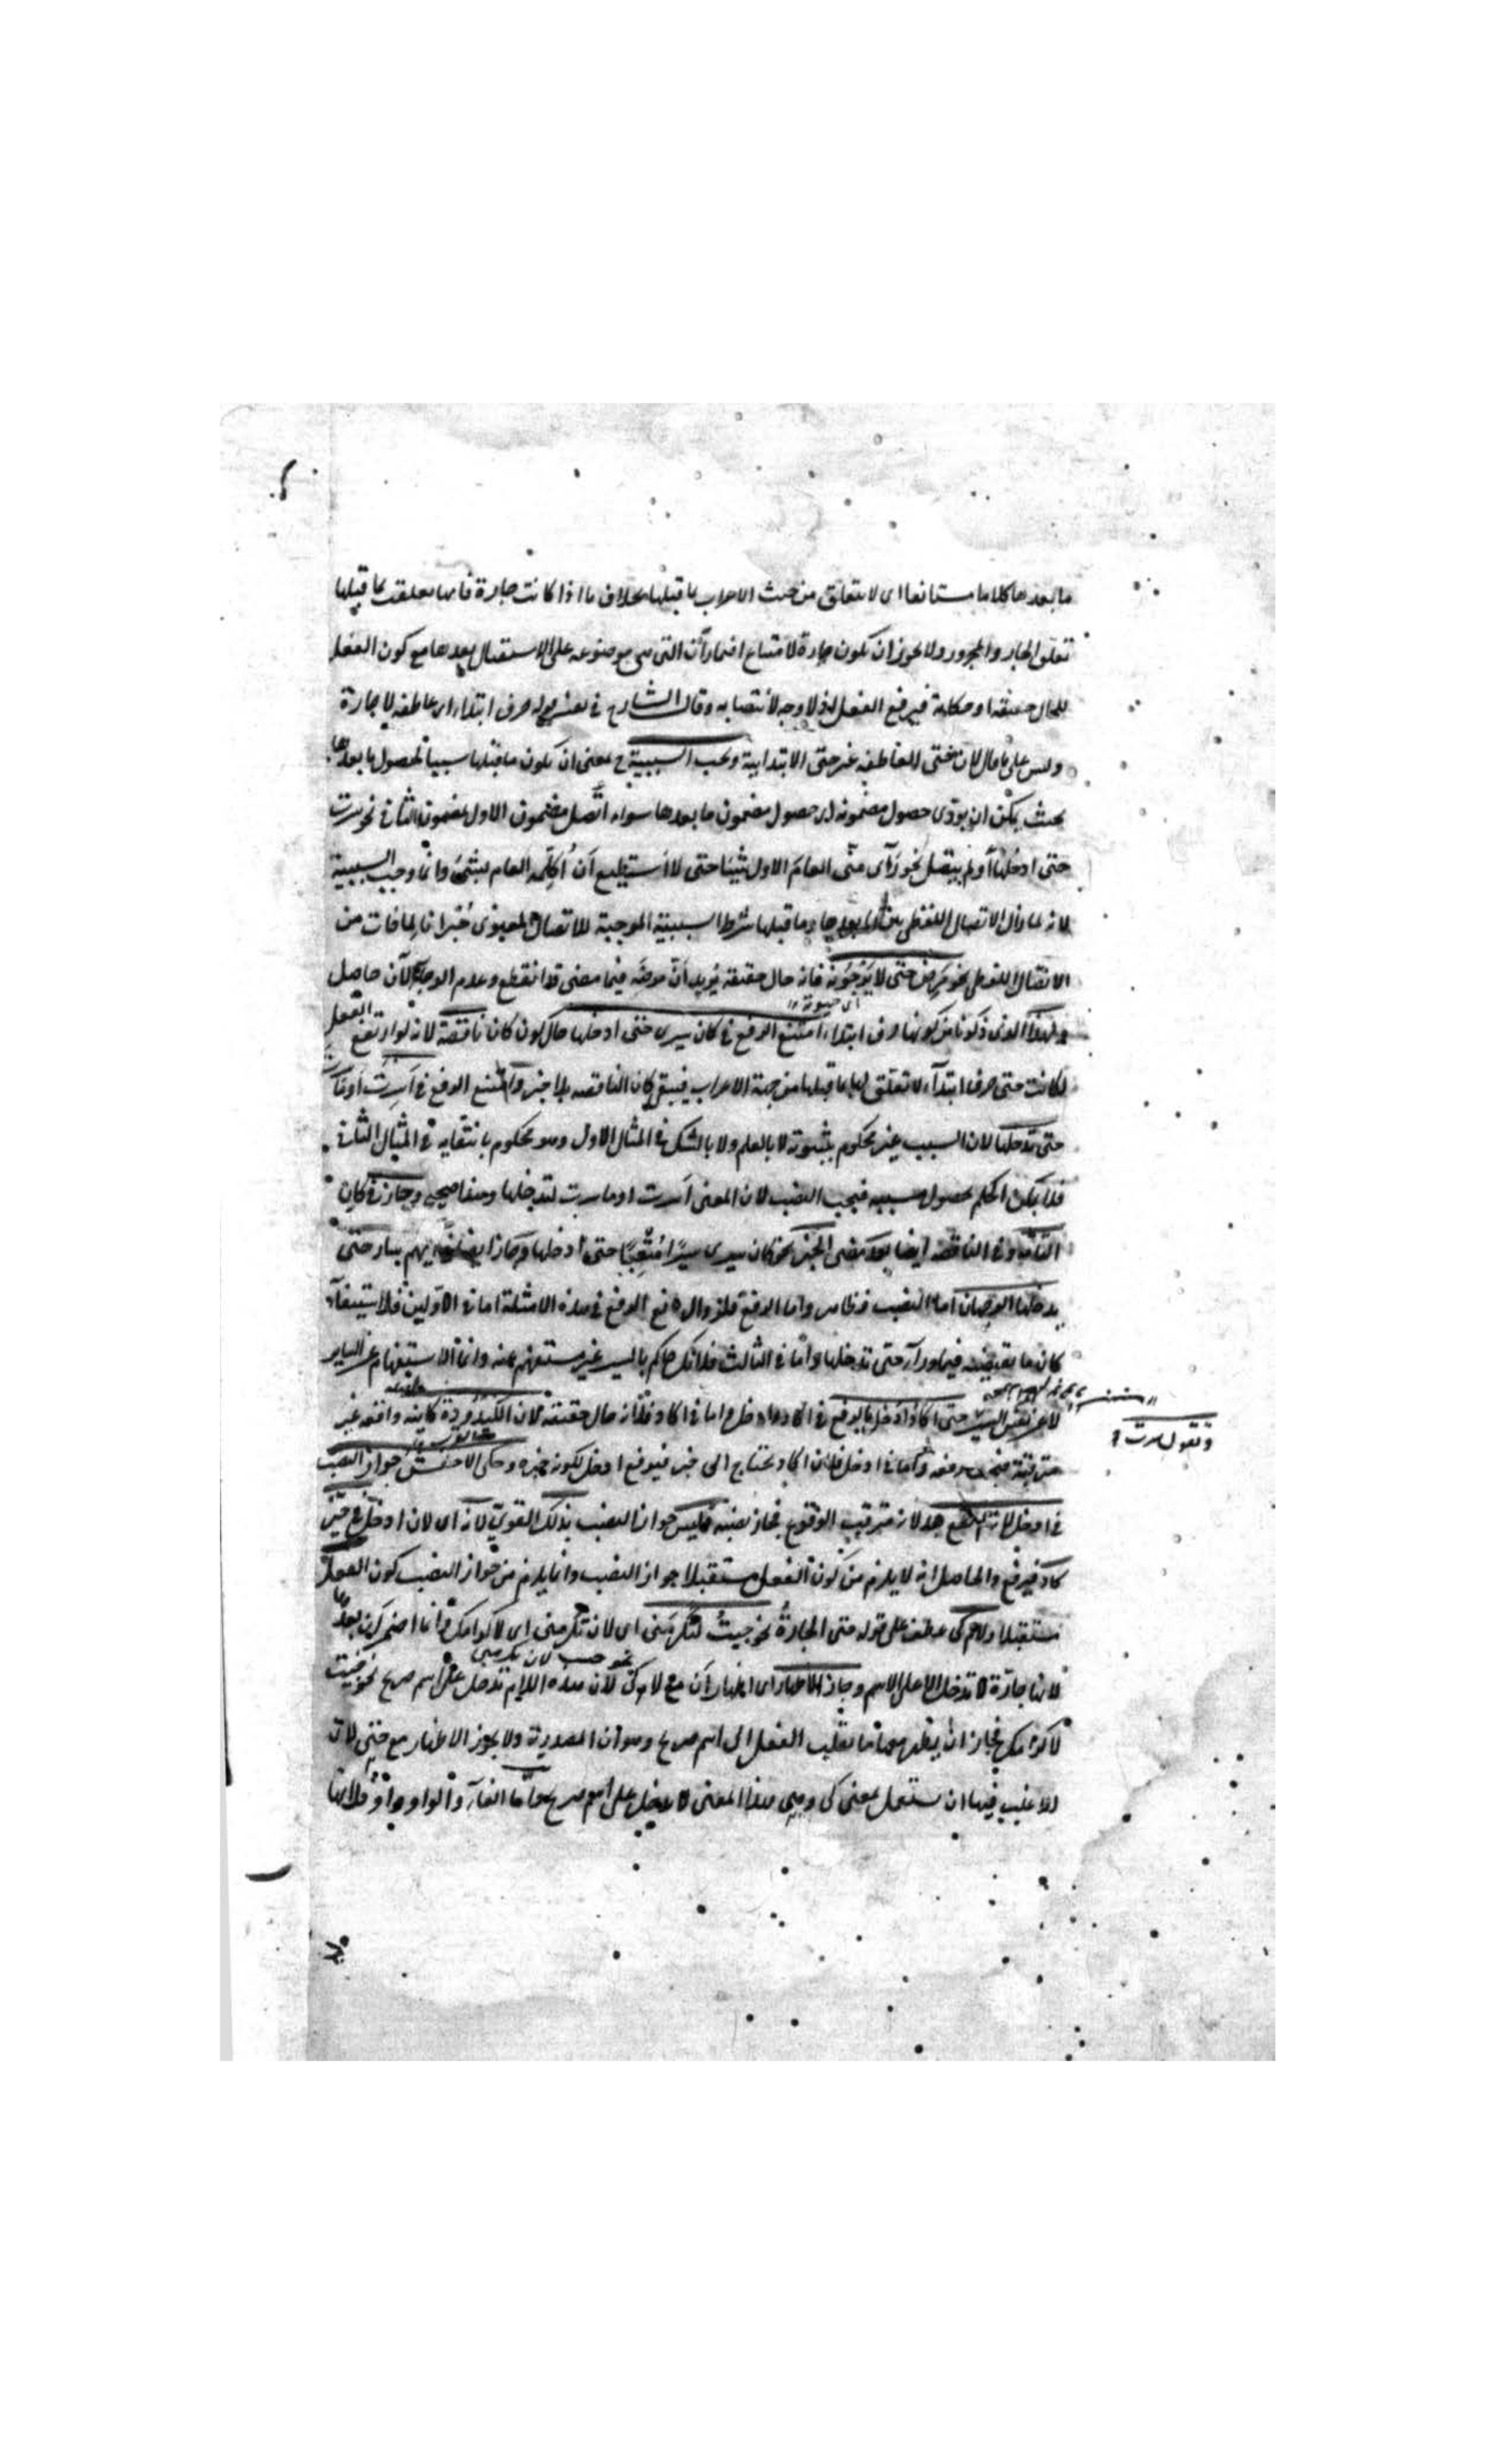 ما بعدها كلاما مستانفا اى لا يتعلق من حيث الاعراب بما قبلها بخلاف ما اذا كانت جارة فانها تعلقت بما قبلها
تعلق الجار والمجرور ولا يجوز ان تكون جارة لامتناع اضمار أن التى هى موضوعه على الاستقبال بعدها مع كون الفعل
للحال حقيقه او حكاية فيرفع الفعل اذ لا وجه لانتصابه وقال الشارح فى تفسير قوله حرف ابتداء اى عاطفه لا جارة
وليس على ما قال لان حتى العاطفه غير حتى الابتدايية وتجب السببية ح بمعنى ان يكون ما قبلها سببا لحصول ما بعدها
بحيث يمكن ان يودى حصول مضمونه الى حصول مضمون ما بعدها سواء اتّصل مضمون الاول بمضمون الثانى نحو سرت
حتى ادخلها أو لم يتصل نحو رَآى منّى العامَ الاول شيئا حتى لا أستطيع أن أُكلِّمه العام بشئ وانما وجب السببية
لانه لما زال الاتصال اللفظى بين ما بعدها وما قبلها شرط السببية الموجبة للاتصال المعنوى جُبرانا لما فات من
الاتصال اللفظى نحو مَرِض حتى لا يَرْجُونَه فانه حال حقيقة يُريد أنّ مرضه فيما مضى قد انقطع وعدم الرجاء الآن حاصل
ولهذا الذى ذكرنا من كونها حرف ابتداء امتنع الرفع فى كان سيرى حتى ادخلها حال كون كان ناقصة لانه لو ارتفع الفعل
لكانت حتى حرف ابتدآء لا تعلق لها بما قبلها من جهة الاعراب فيبقى كان الناقصه بلا خبر وامتنع الرفع فى أسرت او ما سرت
حتى تدخلها لان السبب غير محكوم بثبوته لا بالعلم ولا بالشك فى المثال الاول وهو محكوم بانتفايه فى المثال الثانى
فلا يمكن الحكم بحصول مسببه فيجب النصب لان المعنى أسرت او ما سرت لتدخلها وهذا صحيح وجاز فى كان
التامّه وفى الناقصه ايضا بعد مضى الخبر نحو كان سيرى سيرًا مُتْعِبًا حتى ادخلها وجاز ايضا فى ايهم سار حتى
يدخلها الوجهان اما النصب فظاهر واما الرفع فلزوال المانع الرفع فى هذه الامثلة اما فى الاوّلين فلاستيفآء
كان ما يقتضيه فيما ورآء حتى تدخلها وامّا فى الثالث فلانك حاكم بالسير غير مستفهم عنه وانما الاستفهام عن الساير
لا عن نفس السير حتى اكادُ ادخل بالرفع فى اكاد وادخل اما فى اكاد فلانه حال حقيقة لان الكيدودة كاينه واقعه غير
مترقبة فيجب رفعه واما فى ادخل فلان اكاد يحتاج الى خبر فيرفع ادخل لكونه خبره وحكى الاخفش جواز النصب
وتقول سرت
فى ادخل لانه لم يقع بعد لانه مترقب الوقوع فجاز نصبه فليس جواز النصب بذلك القوى لانه اى لان ادخل فى حيّز
كاد فيرفع والحاصل انه لا يلزم من كون الفعل مستقبلا جواز النصب وانما يلزم من جواز النصب كون الفعل
مستقبلا ولام كى عطف على قوله حتى الجارة نحو جيتُ لتُكْرِمَنى اى لان تكرمنى اى لاكرامك وانما اضمر أن بعدها
لانها جارّة لا تدخل الا على الاسم وجاز الاظهار اى اظهار أن مع لام كى نحو جيت لان تكرمنى لان هذه اللام تدخل على اسم صريح نحو جيت
لاكرامك فجاز ان يظهر معها ما يقلب الفعل الى اسم صريح وهو ان المصدرية ولا يجوز الاظهار مع حتى لان
الاغلب فيها ان تستعمل بمعنى كى وهى بهذا المعنى لا تدخل على اسم صريح وامّا الفآء والواو وأوْ فلانها